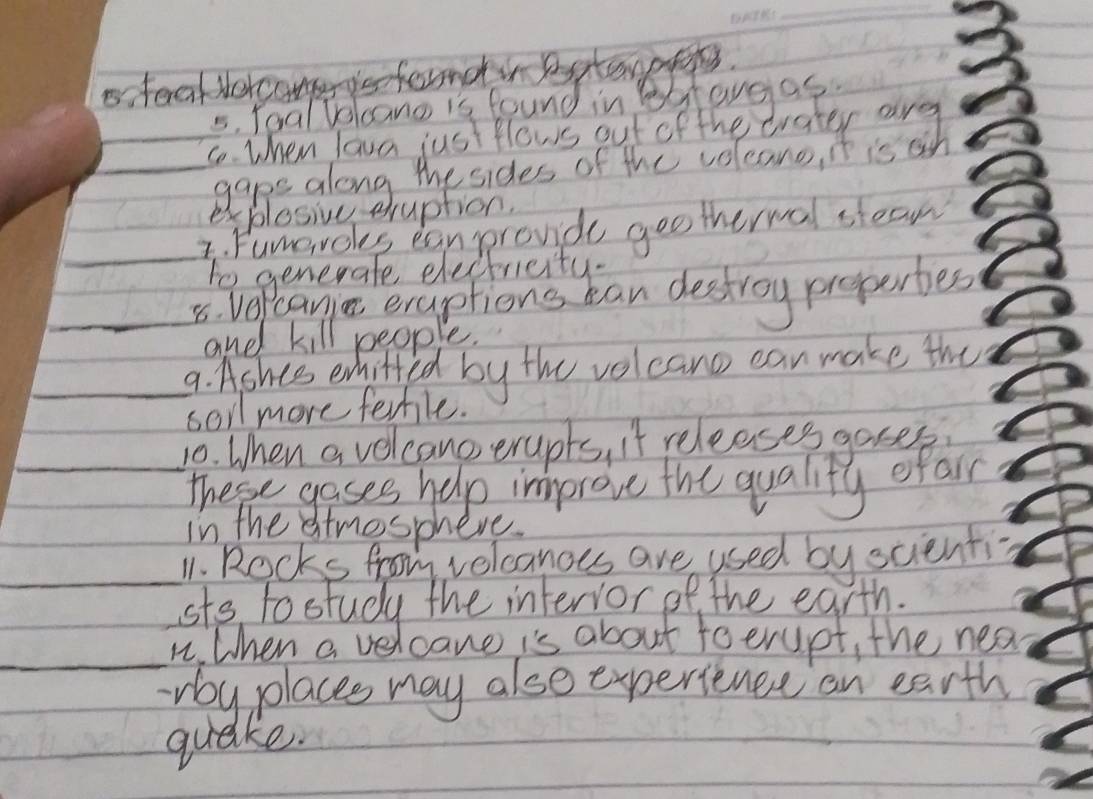 DATE:
5. Taal Volcano is found in Batangas.
5. Taal Volcano is found in Batangas.
6. When lava just flows out of the crater and
gaps along the sides of the volcano, it is an
explosive eruption.
7. Fumaroles can provide geothermal steam
to generate electricity.
8. Volcanic eruptions can destroy properties
and kill people.
9. Ashes emitted by the volcano can make the
soil more fertile.
10. When a volcano erupts, it releases gases.
These gases help improve the quality of air
in the atmosphere.
11. Rocks from volcanoes are used by scienti-
sts to study the interior of the earth.
12. When a volcano is about to erupt, the nea
-rby places may also experience an earth
quake.